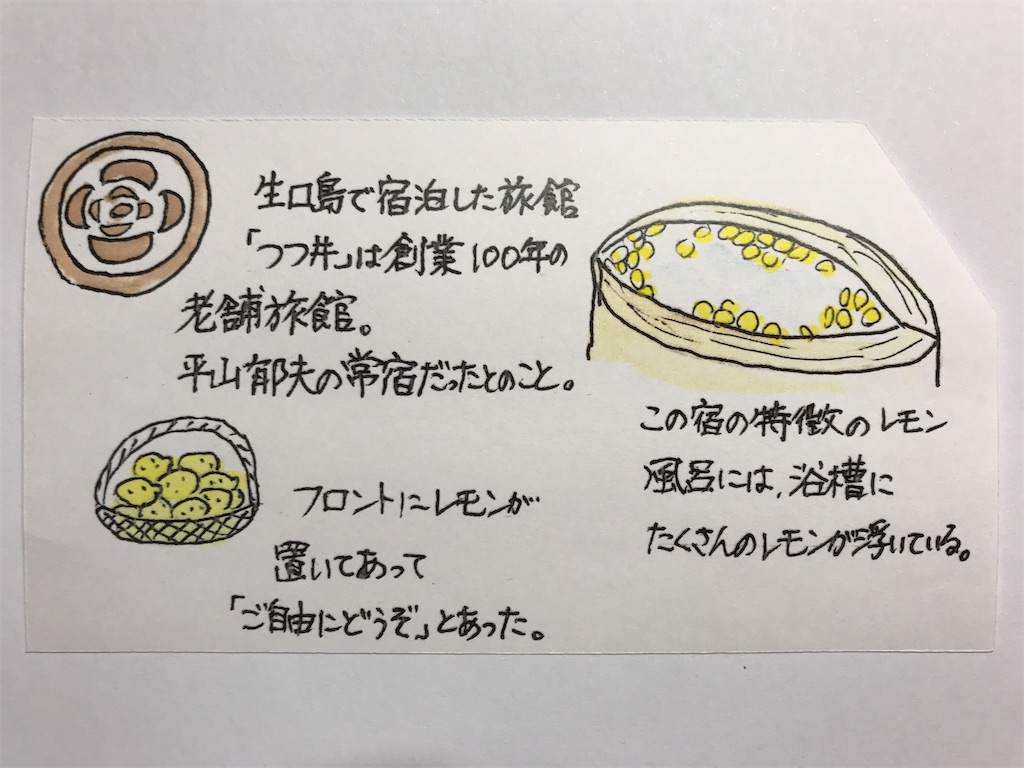 生口島で宿泊した旅館
「つつ井」は創業100年の
老舗旅館。
平山郁夫の常宿だったとのこと。
フロントにレモンが
置いてあって
「ご自由にどうぞ」とあった。
この宿の特徴のレモン
風呂には、浴槽に
たくさんのレモンが浮いている。